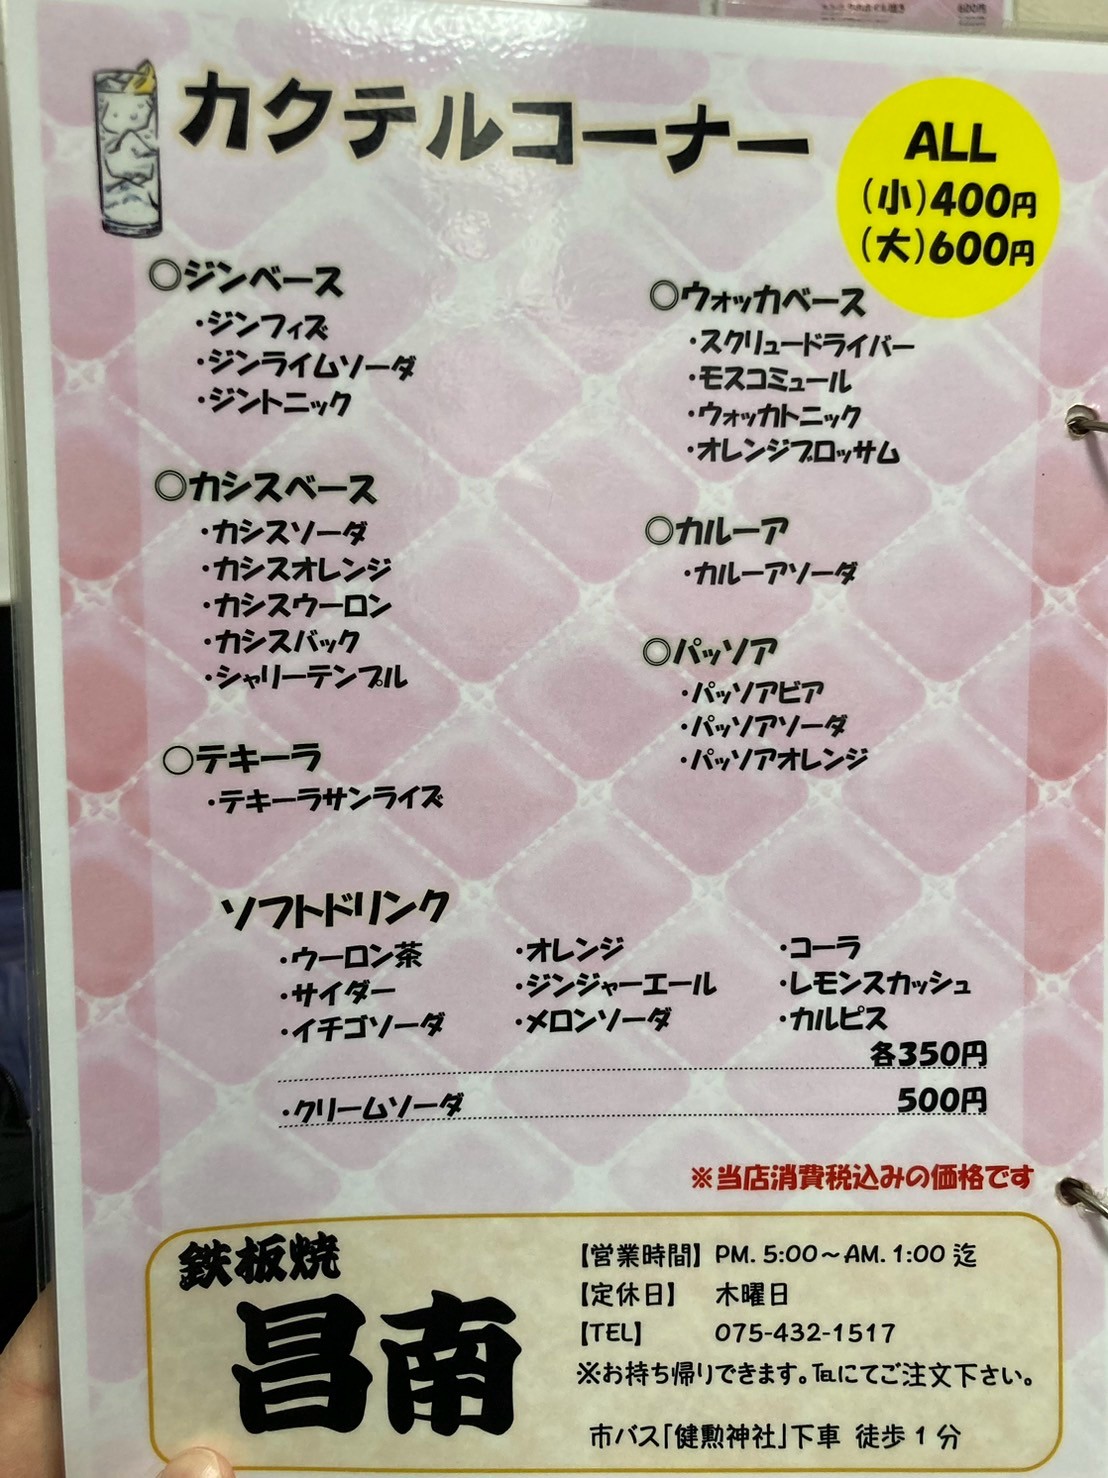 カクテルコーナー
ALL
(小)400円
(大)600円
◎ジンベース
・ジンフィズ
・ジンライムソーダ
・ジントニック
◎カシスベース
・カシスソーダ
・カシスオレンジ
・カシスウーロン
・カシスバック
・シャリーテンプル
◎テキーラ
・テキーラサンライズ
◎ウォッカベース
・スクリュードライバー
・モスコミュール
・ウォッカトニック
・オレンジブロッサム
◎カルーア
・カルーアソーダ
◎パッソア
・パッソアビア
・パッソアソーダ
・パッソアオレンジ
ソフトドリンク
・ウーロン茶
・サイダー
・イチゴソーダ
・オレンジ
・ジンジャーエール
・メロンソーダ
・コーラ
・レモンスカッシュ
・カルピス
各350円
・クリームソーダ 500円
※当店消費税込みの価格です
鉄板焼
昌南
【営業時間】 PM. 5:00～AM. 1:00 迄
【定休日】 木曜日
【TEL】 075-432-1517
※お持ち帰りできます。TELにてご注文下さい。
市バス「健勲神社」下車 徒歩1分